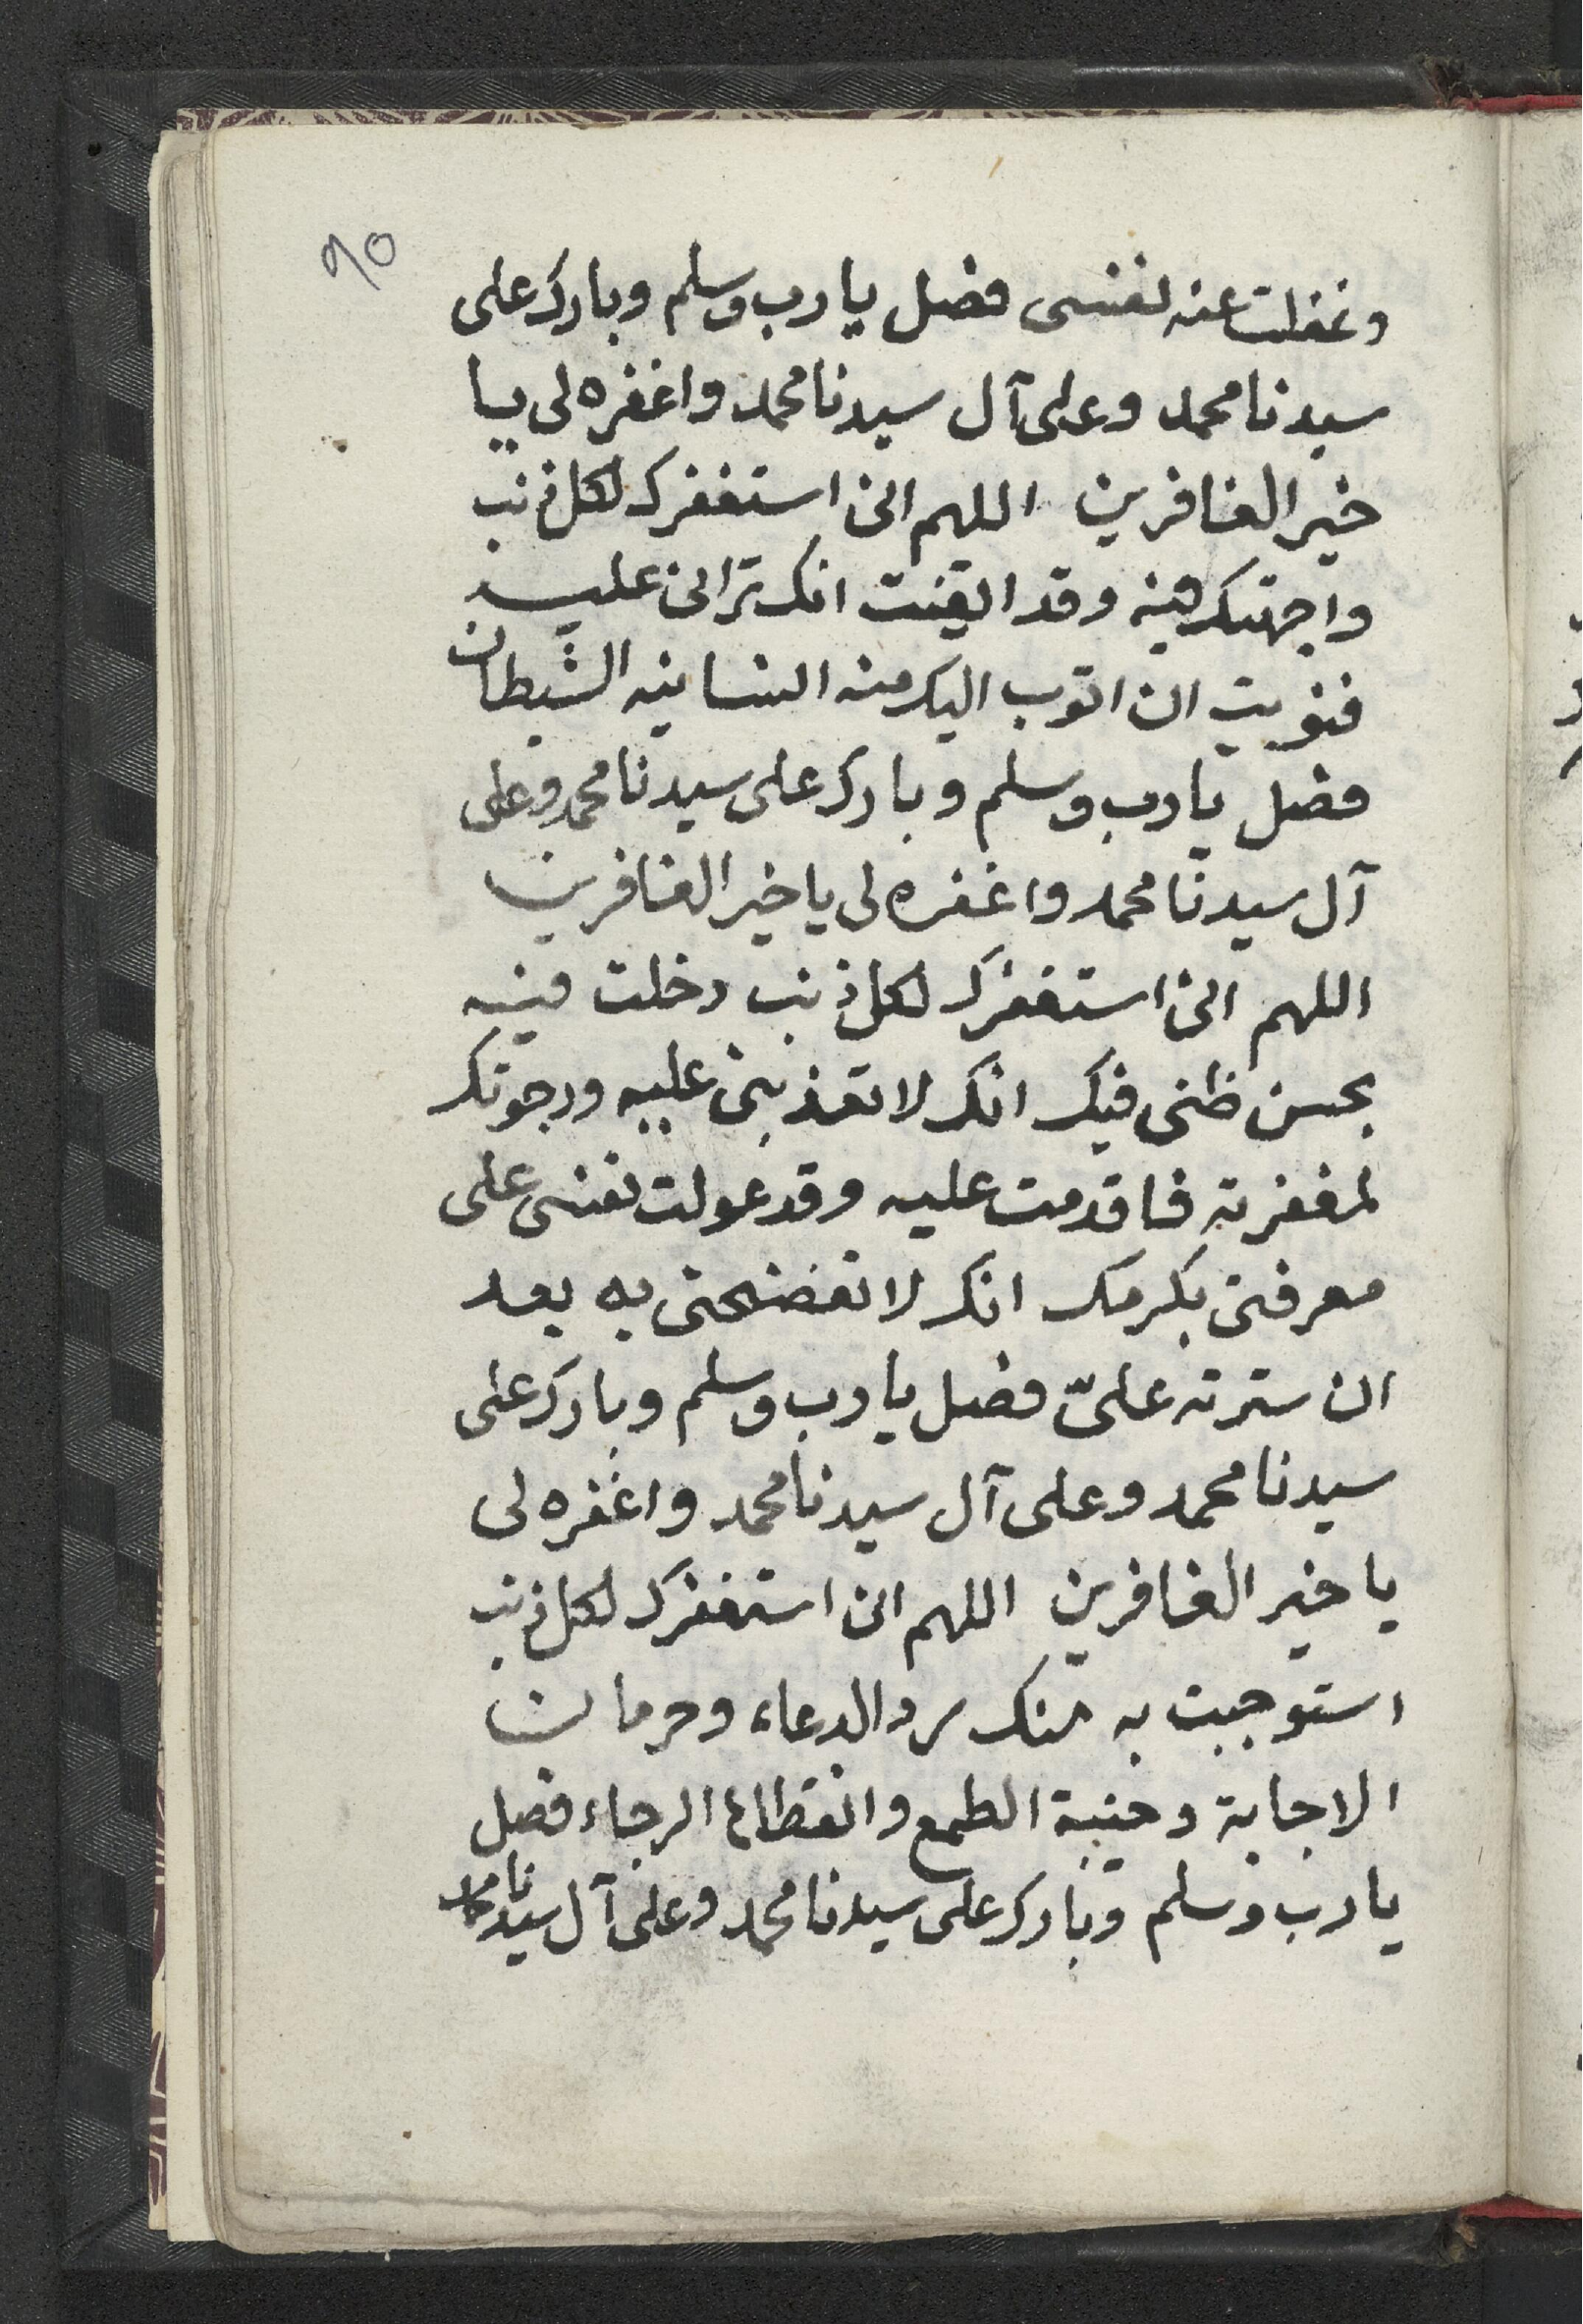 ٩٥
وغفلت عنه نفسى فصل يا رب وسلم وبارك على
سيدنا محمد وعلى آل سيدنا محمد واغفره لى يا
خير الغافرين اللهم انى استغفرك لكل ذنب
واجهتك فيه وقد ايقنت انك ترانى عليه
فنويت ان اتوب اليك منه انسانيه الشيطان
فصل يا رب وسلم وبارك على سيدنا محمد وعلى
آل سيدنا محمد واغفره لى يا خير الغافرين
اللهم انى استغفرك لكل ذنب دخلت فيه
بحسن ظنى فيك انك لا تعذبنى عليه ورجوتك
لمغفرته فاقدمت عليه وقد عولت نفسى على
معرفتى بكرمك انك لا تفضحنى به بعد
ان سترته علىّ فصل يا رب وسلم وبارك على
سيدنا محمد وعلى آل سيدنا محمد واغفره لى
يا خير الغافرين اللهم انى استغفرك لكل ذنب
استوجبت به منك رد الدعاء وحرمان
الاجابة وخيبة الطمع وانقطاع الرجاء فصل
يا رب وسلم وبارك على سيدنا محمد وعلى آل سيدنا محمد